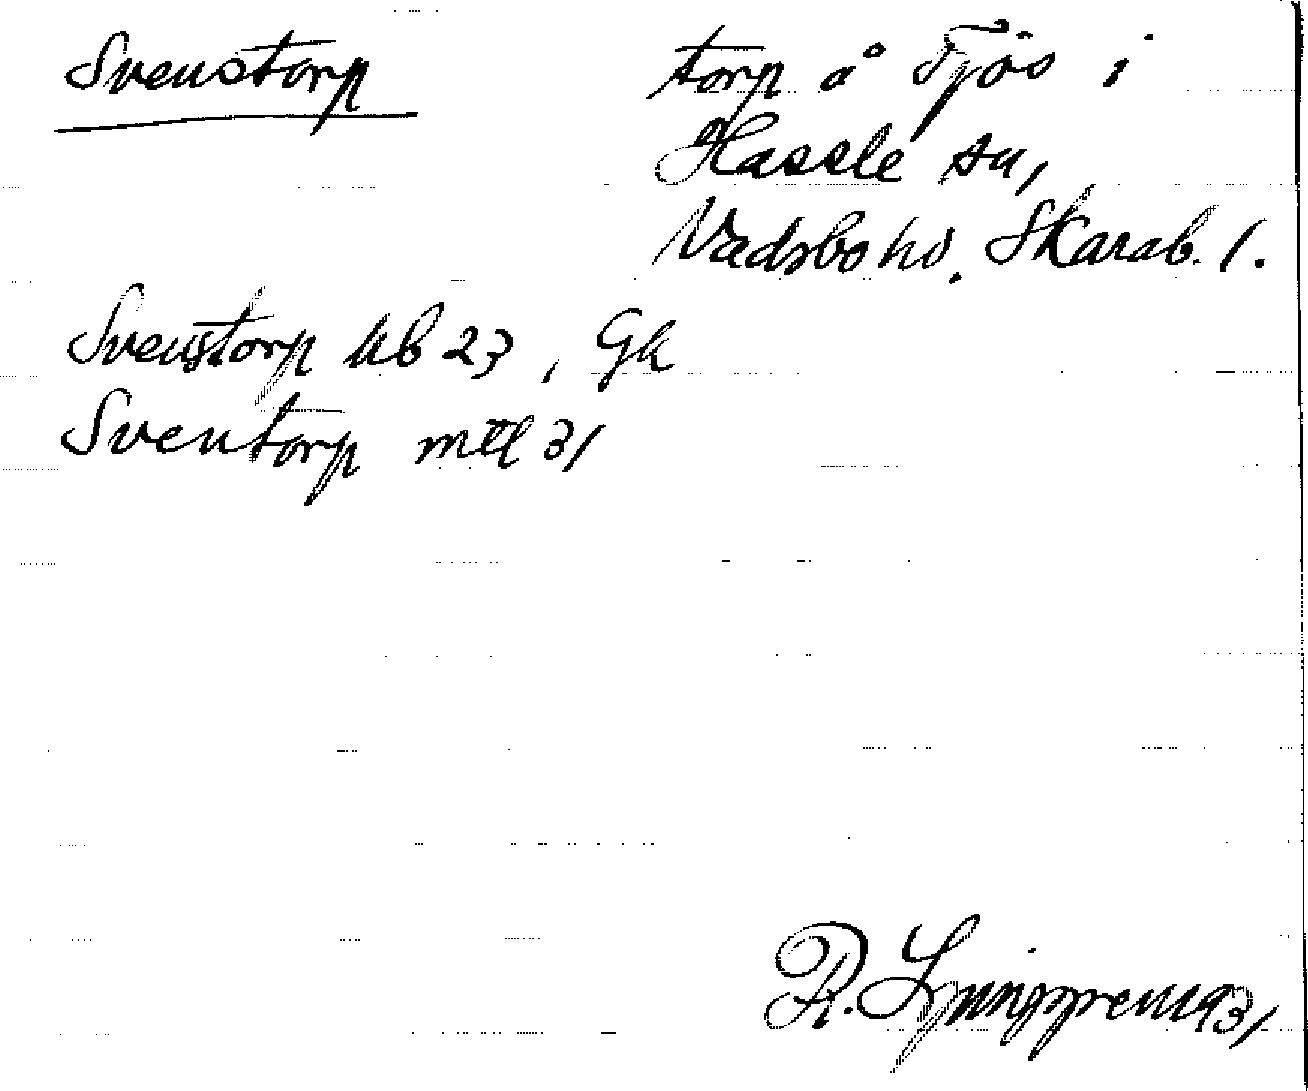 Svenstorp
torp å Tjös i
Hassle sn,
Vadsbo hd. Skarab. l.
Svenstorp hb 23, Gk
Sventorp mtl 31
R. 1931